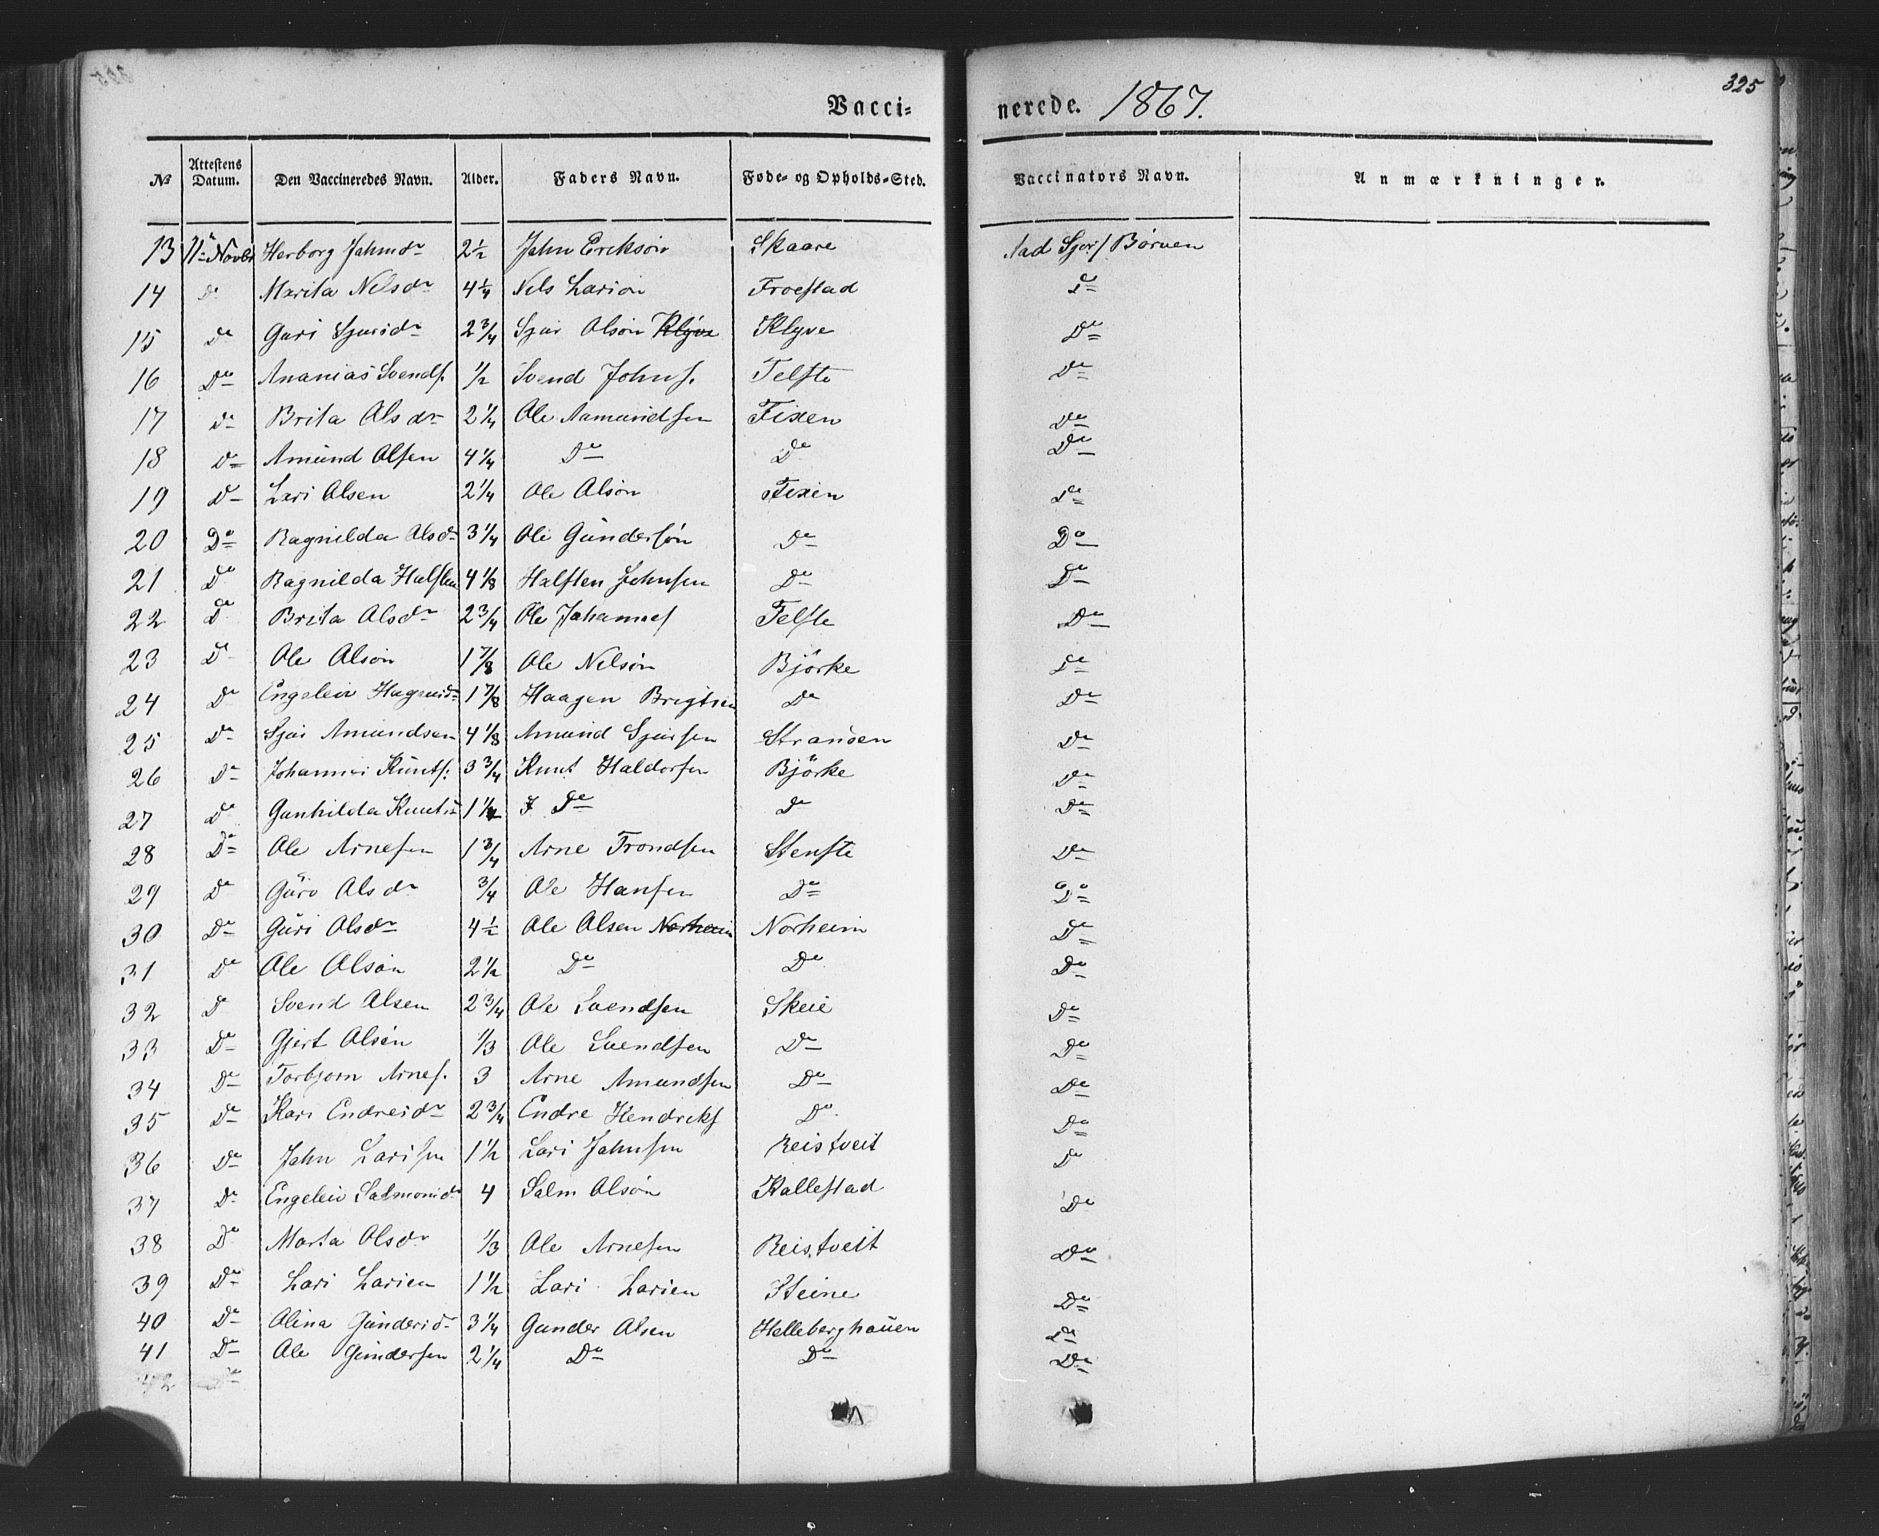 325
Vacci= nerede. 1867.
No Attestens Datum. Den Vaccineredes Navn. Alder. Faders Navn. Føde= og Opholds=Sted. Vaccinators Navn. Anmærkninger.
13 11te Novbr Herborg Jahnsdr 2½ Jahn Erikson Skaare Aad Sjors Børven
14 Do Marita Nelsdr 4¼ Nels Larson Froestad Do
15 Do Guri Sjursdr 2¾ Sjur Olson Klyve Klyve Do
16 Do Ananias Svends. ½ Svend Johns. Telste Do
17 Do Brita Olsdr 2¼ Ole Aamundsen Fixen Do
18 Do Amund Olsen 4¼ Do Do Do
19 Do Lars Olsen 2¼ Ole Olson Fixen Do
20 Do Ragnilda Olsdr 3¼ Ole Gunderson Do Do
21 Do Ragnilda Halsten 4⅛ Halsten Johnsen Do Do
22 Do Brita Olsdr 2¾ Ole Johannes Telste Do
23 Do Ole Olson 1⅞ Ole Nelson Bjørke Do
24 Do Engeleiv Hagensdr 1⅞ Haagen Brigtsen Do Do
25 Do Sjur Amundsen 4⅛ Amund Sjursen Stranden Do
26 Do Johannes Knuts. 3¾ Knut Haldorsen Bjørke Do
27 Do Gunhilda Knutsdr 1¼ Do Do Do
28 Do Ole Arnesen 1¾ Arne Trondsen Stenste Do
29 Do Guro Olsdr ¾ Ole Hansen Do Do
30 Do Guri Olsdr 4½ Ole Olsen Norheim Norheim Do
31 Do Ole Olson 2½ Do Do Do
32 Do Svend Olsen 2¾ Ole Svendsen Skeie Do
33 Do Gjert Olsen ⅓ Ole Svendsen Do Do
34 Do Torbjorn Arnes. 3 Arne Amundsen Do Do
35 Do Kari Endresdr 2¾ Endre Hendriks Do Do
36 Do Jahn Larssen 1½ Lars Jahnsen Reistveit Do
37 Do Engeleiv Salmonsdr 4 Salm Olson Kallestad Do
38 Do Marta Olsdr ⅓ Ole Arnesen Reistveit Do
39 Do Lars Larsen 1½ Lars Larsen Steine Do
40 Do Olina Gundersdr 3¼ Gunder Olsen Helleberghauen Do
41 Do Ole Gundersen 2¼ Do Do Do
42 Do